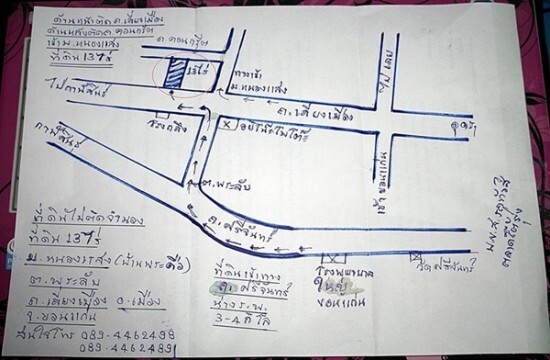 ด้านหน้าติด ถ.เลี่ยงเมือง
ด้านหลังติด ถ.คอนกรีต
เข้า ม.หนองแสง
ที่ดิน 13ไร่
ถ.คอนกรีต
13ไร่
ทางเข้า
ม.หนองแสง
ไปกาฬสินธุ์
ถ.เลี่ยงเมือง
ไป เลย
อุดร
โรงกลึง
เข้าขอนแก่น
กาฬสินธุ์
ต.พระลับ
ถ.ศรีจันทร์
ที่ดินไม่ติดจำนอง
ที่ดิน 13ไร่
ม.หนองแสง (บ้านพระคือ)
ต.พระลับ
ถ.เลี่ยงเมือง อ.เมือง
จ.ขอนแก่น
สนใจโทร 089-4462498
089-4462489
ที่ดินเข้าทาง
ถ.ศรีจันทร์
ห่าง ร.พ.
3-4 กิโล
โรงพยาบาล
ศูนย์
ขอนแก่น
วัดศรีจันทร์